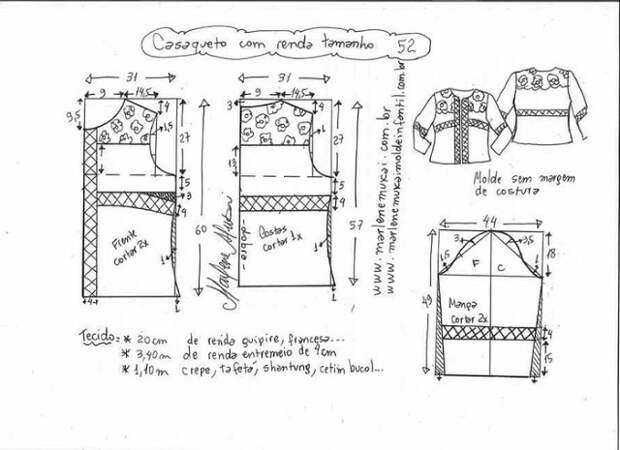 Casaqueto com renda tamanho 52
31
9 14,5
4
9,5
1,5
27
5
3
4
Frente
cortar 2x
1
4
1
60
31
9 14,5
3
4
1
27
13
5
4
Costas
cortar 1x
dobra
1
1
57
Marlene Mukai
www.marlenemukai.com.br
www.marlenemukaimoldeinfantil.com.br
Molde sem margem
de costura
44
3 3,5
1,5 1
F C
18
49
Manga
cortar 2x
4
15
1 1
Tecido= * 20cm de renda guipire, francesa...
* 3,40m de renda entremeio de 4cm
* 1,10m crepe, tafetá, shantung, cetim bucol...